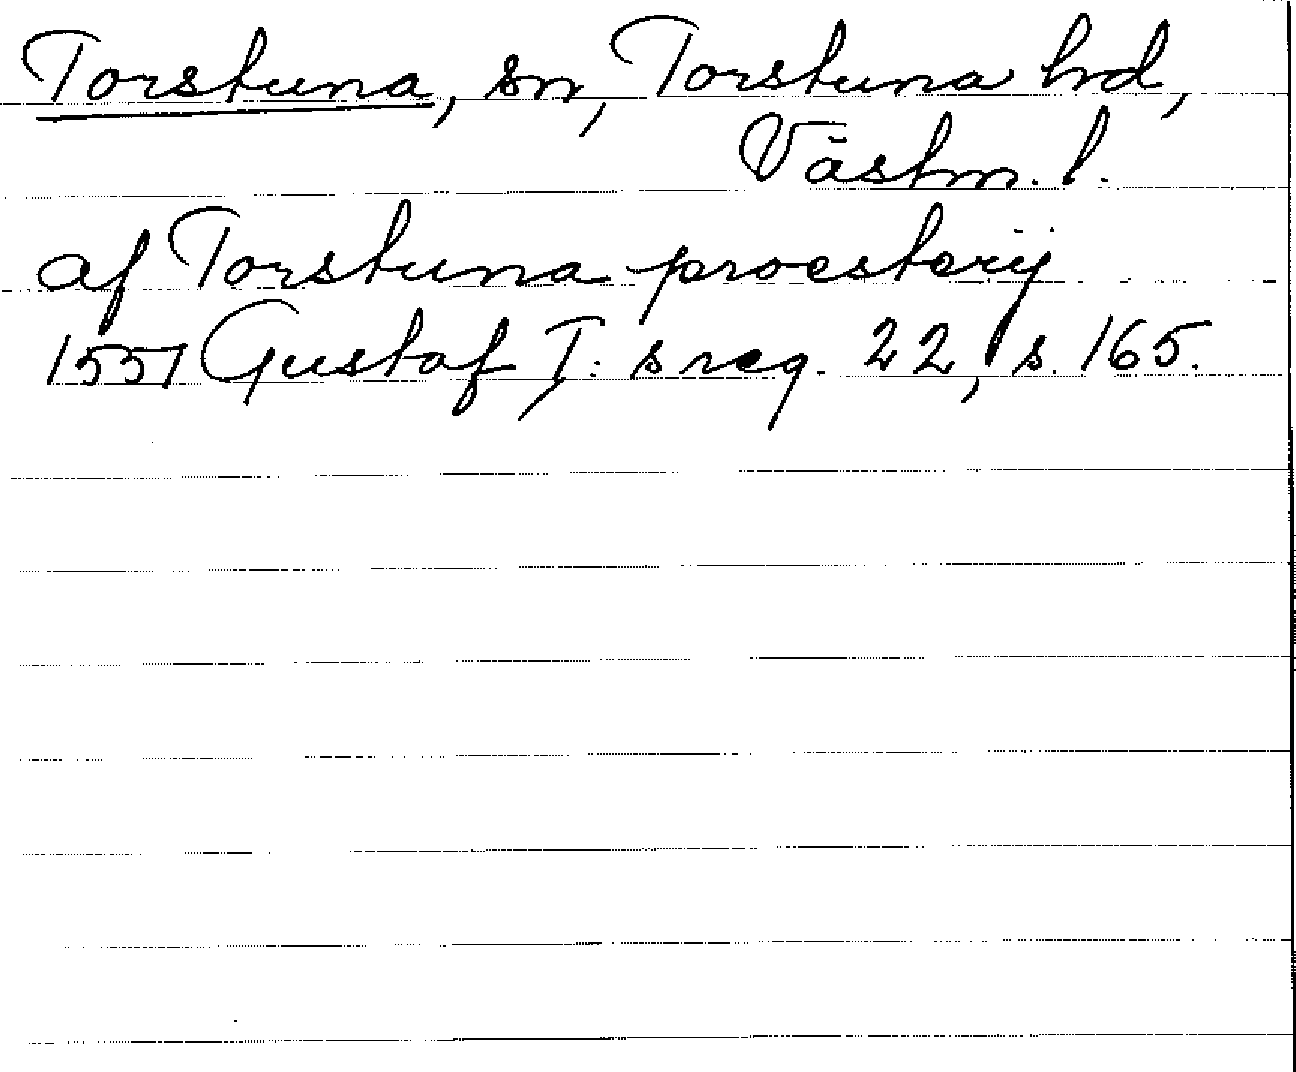 Torstuna, sn, Torstuna hrd,
Västm. l.
af Torstuna proesterij
1551 Gustaf I:s reg. 22, s. 165.